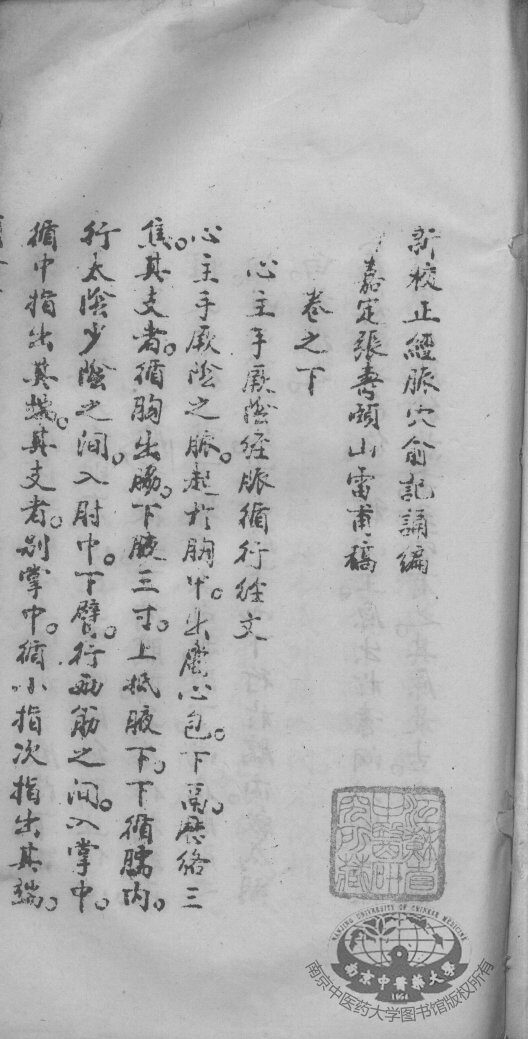 新校正經脈穴俞記誦編
嘉定張壽頤山雷甫稿
卷之下
心主手厥陰經脈循行經文
心主手厥陰之脈。起於胸中。出屬心包。下鬲。歷絡三
焦。其支者。循胸出脇。下腋三寸。上抵腋下。下循臑內。
行太陰少陰之間。入肘中。下臂。行兩筋之間。入掌中。
循中指出其端。其支者。別掌中。循小指次指出其端。
江蘇省中醫研究所藏
NANJING UNIVERSITY OF CHINESE MEDICINE
南京中醫藥大學
1954
南京中医药大学图书馆版权所有